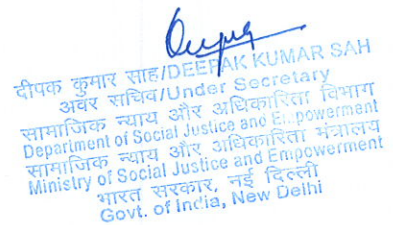 दीपक कुमार साह/DEEPAK KUMAR SAH
अवर सचिव/Under Secretary
सामाजिक न्याय और अधिकारिता विभाग
Department of Social Justice and Empowermant
सामाजिक न्याय और अधिकारिता मंत्रालय
Ministry of Social Justice and Empowerment
भारत सरकार, नई दिल्ली
Govt. of India, New Delhi